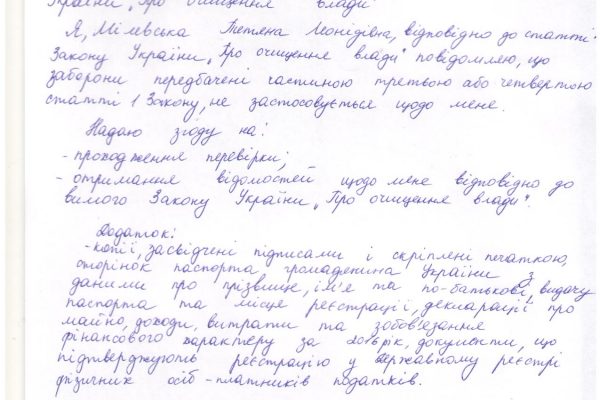 України „Про очищення влади"
Я, Мілевська Тетяна Леонідівна, відповідно до статті
Закону України „Про очищення влади" повідомляю, що
заборони передбачені частиною третьою або четвертою
статті 1 Закону, не застосовується щодо мене.
Надаю згоду на:
- проходження перевірки;
- отримання відомостей щодо мене відповідно до
вимого Закону України „Про очищення влади".
Додаток:
- копії, засвідчені підписами і скріплені печаткою,
сторінок паспорта громадянина України з
даними про прізвище, ім'я та по-батькові, видачу
паспорта та місце реєстрації, декларації про
майно, доходи, витрати та зобов'язання
фінансового характеру за 2016 рік, документи, що
підтверджують реєстрацію у Державному реєстрі
фізичних осіб - платників податків.